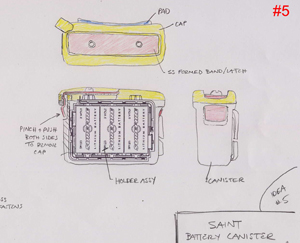 #5
PAD
CAP
SS FORMED BAND/LATCH
PINCH + PUSH
BOTH SIDES
TO REMOVE
CAP
HOLDER ASSY
CANISTER
IDEA
#5
SAINT
BATTERY CANISTER